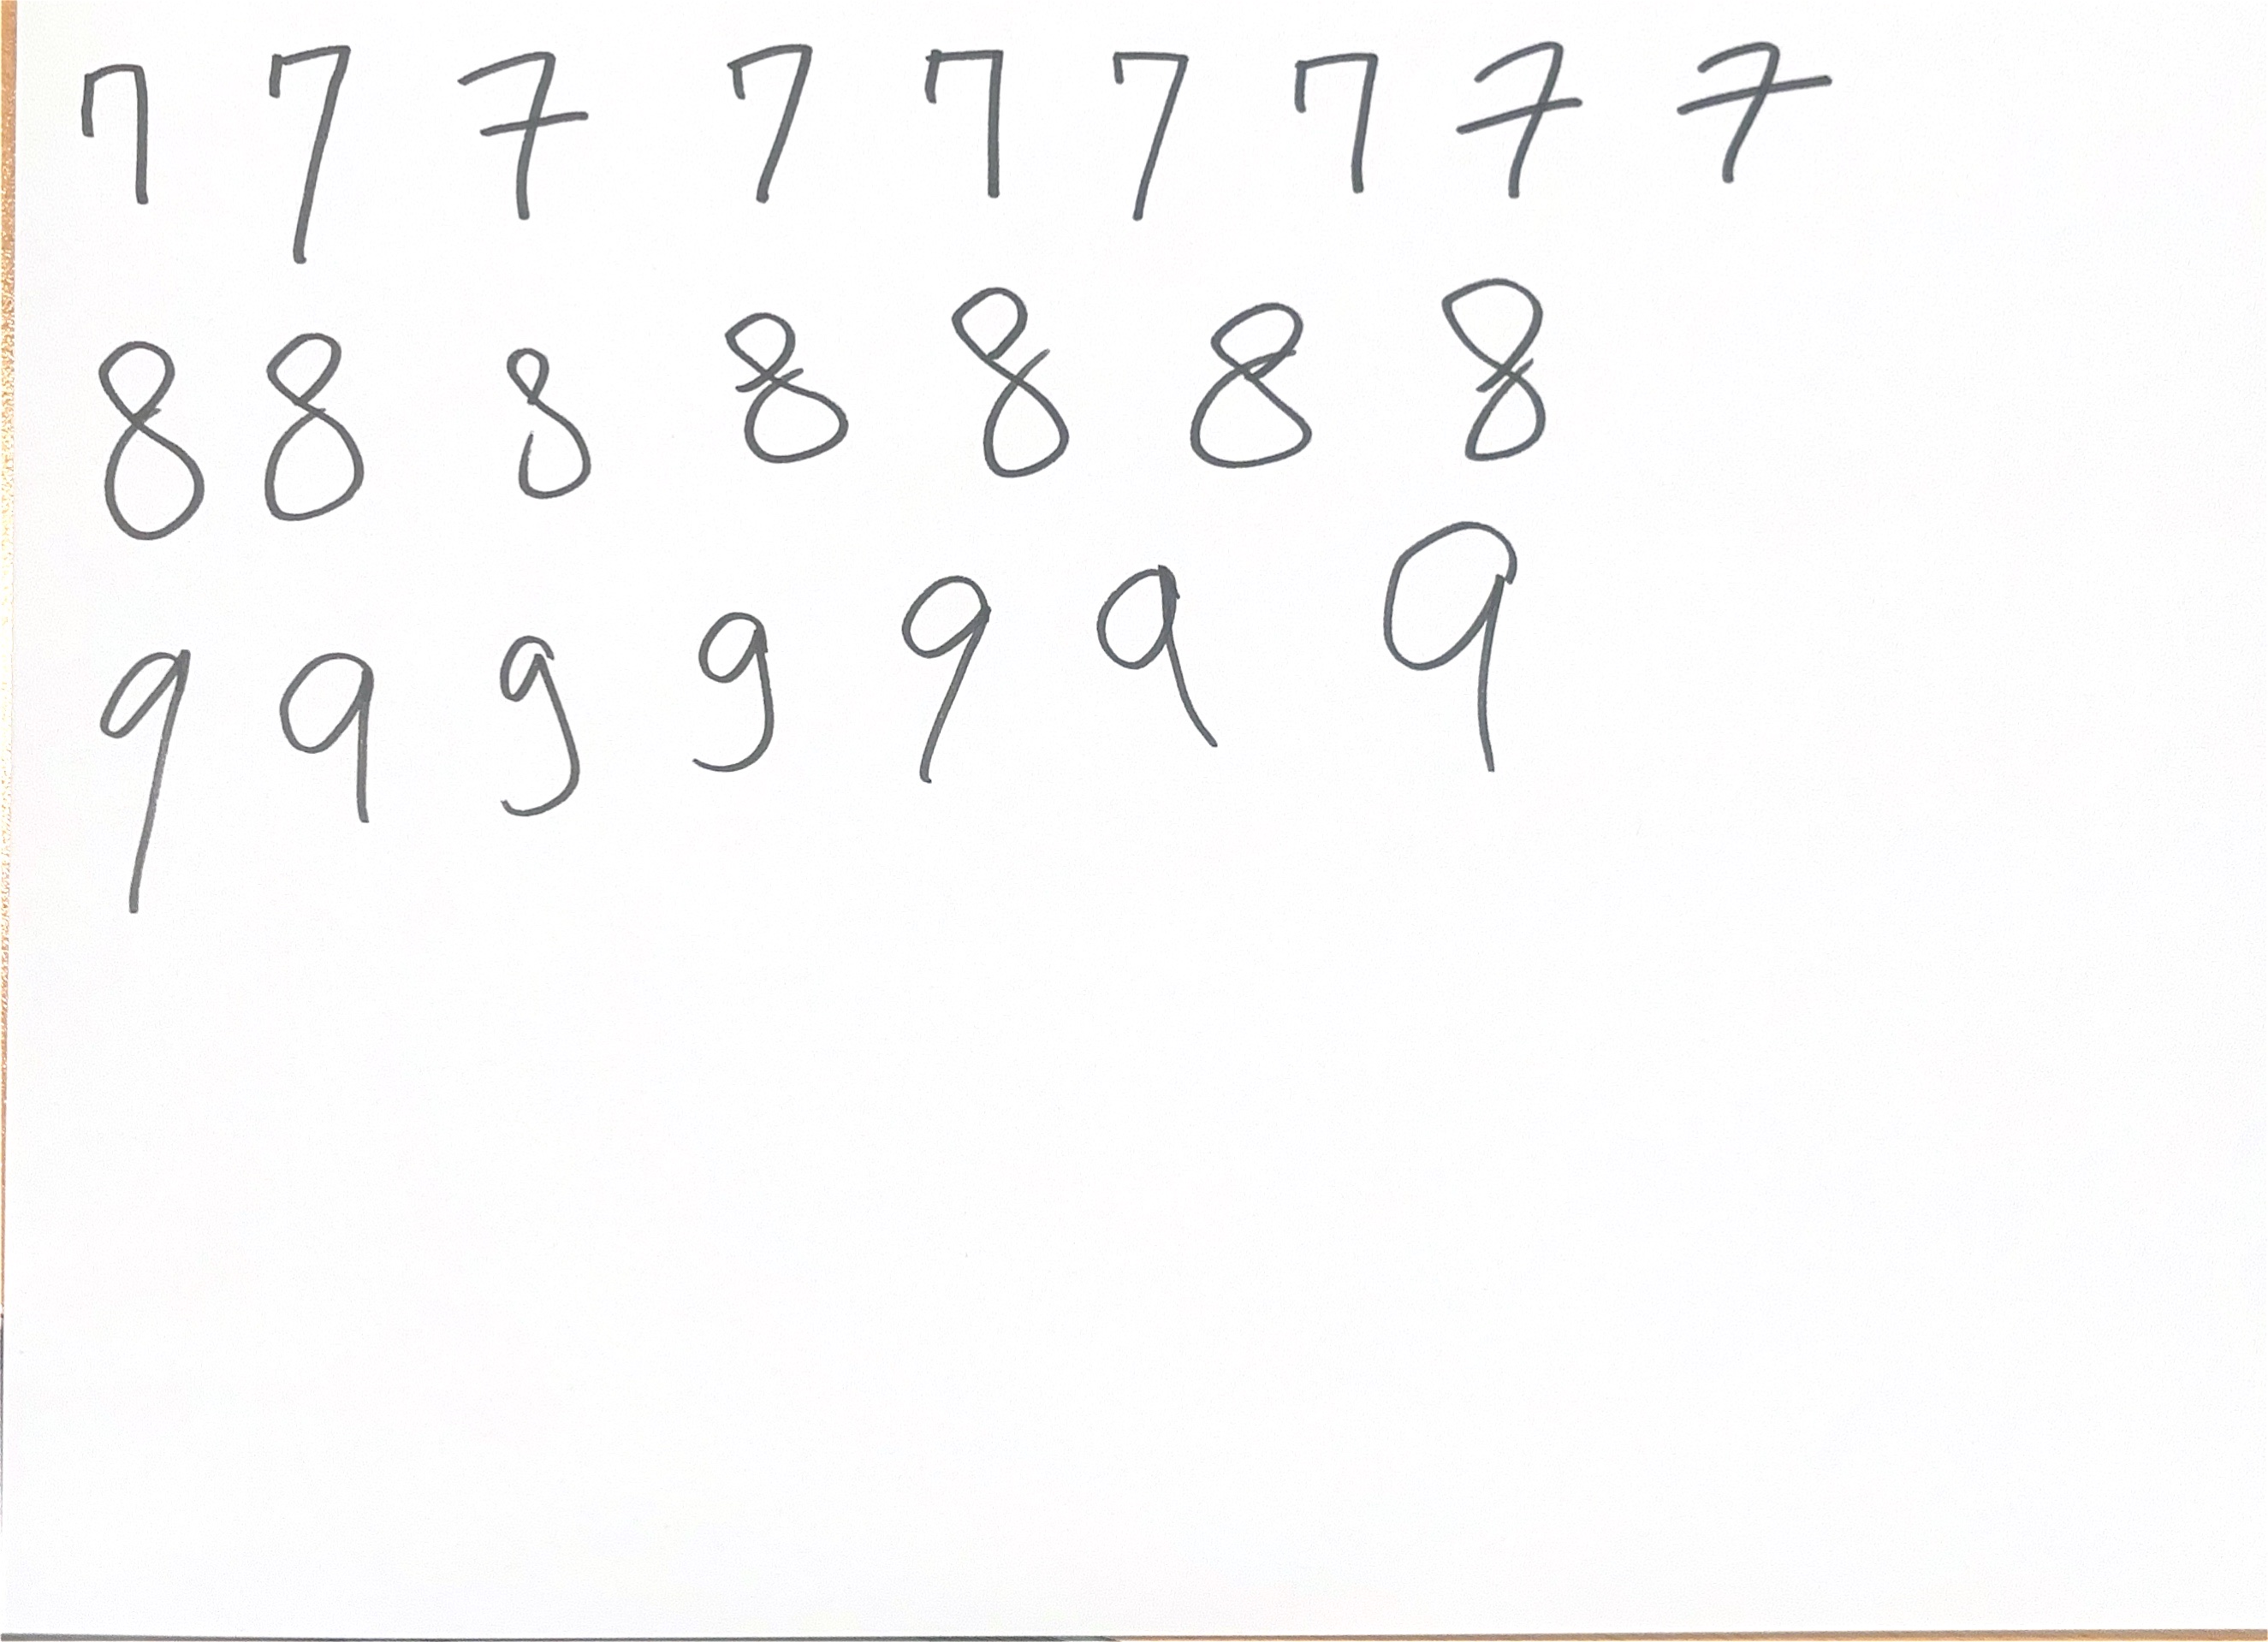 7 7 7 7 7 7 7 7 7
8 8 8 8 8 8 8
9 9 9 9 9 9 9